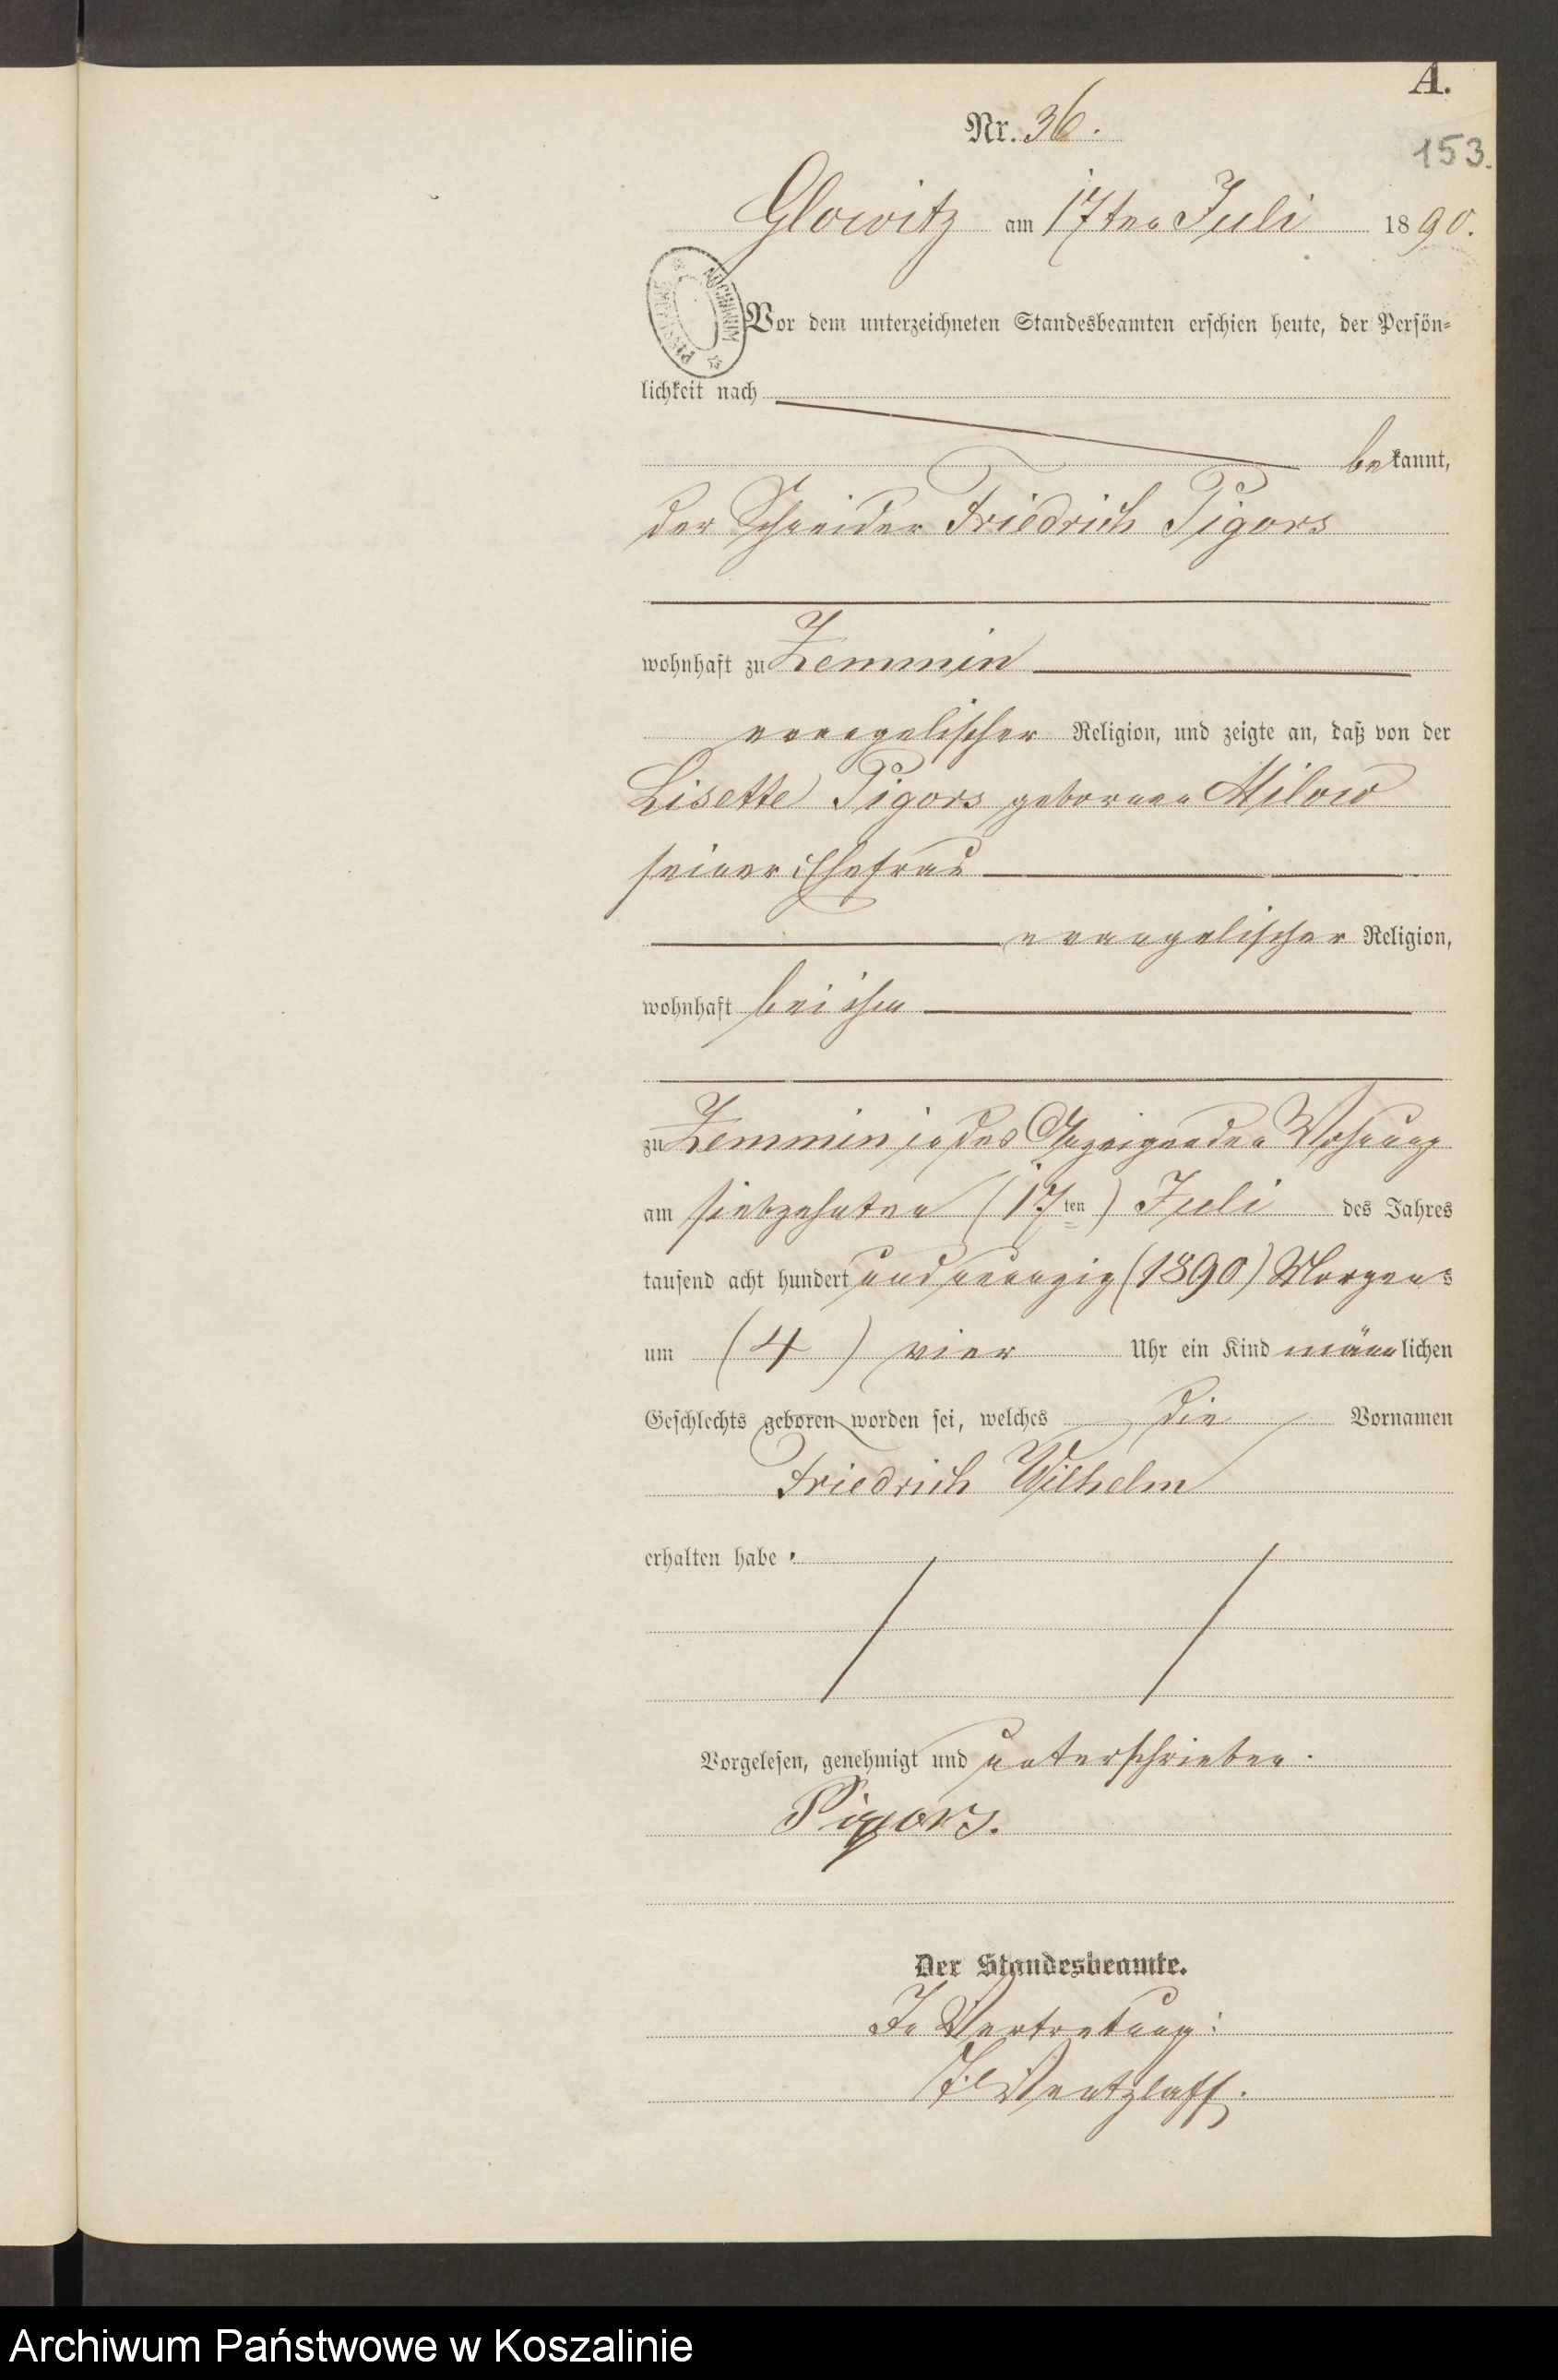 A.
Nr. 36.
153.
Glowitz am 17ten Juli 1890.
Vor dem unterzeichneten Standesbeamten erschien heute, der Persön-
lichkeit nach
bekannt,
der Schneider Friedrich Pigors
wohnhaft zu Zemmin
evangelischer Religion, und zeigte an, daß von der
Lisette Pigors geborenen Milow
seiner Ehefrau
evangelischer Religion,
wohnhaft bei ihm
zu Zemmin in des Anzeigenden Wohnung
am siebzehnten (17ten) Juli des Jahres
tausend acht hundert und neunzig (1890) Morgens
um (4) vier Uhr ein Kind männlichen
Geschlechts geboren worden sei, welches die Vornamen
Friedrich Wilhelm
erhalten habe.
Vorgelesen, genehmigt und unterschrieben.
Pigors.
Der Standesbeamte.
In Vertretung:
Wentzlaff.
Archiwum Państwowe w Koszalinie